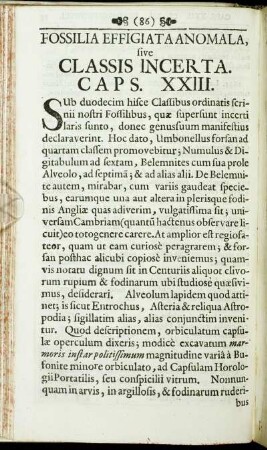 (86)
FOSSILIA EFFIGIATA ANOMALA,
sive
CLASSIS INCERTA.
CAPS. XXIII.
SUb duodecim hisce Classibus ordinatis scri-
nii nostri Fossilibus, quæ supersunt incerti
laris sunto, donec genus suum manifestius
declaraverint. Hoc dato, Umbonellus forsan ad
quartam classem promovebitur; Numulus & Di-
gitabulum ad sextam, Belemnites cum sua prole
Alveolo, ad septimã; & ad alias alii. De Belemni-
te autem, mirabar, cum variis gaudeat specie-
bus, earumque una aut altera in plerisque fodi-
nis Angliæ quas adiverim, vulgatissima sit; uni-
versam Cambriam (quantũ hactenus observare li-
cuit) eo toto genere carere. At amplior est regio sa-
teor, quam ut eam curiosè peragrarem; & for-
san posthac alicubi copiosè inveniemus; quam-
vis notatu dignum sit in Centuriis aliquot clivo-
rum rupium & fodinarum ubi studiosè quæsivi-
mus, desiderari. Alveolum lapidem quod atti-
net; is sicut Entrochus, Asteria & reliqua Astro-
podia; sigillatim alias, alias conjunctim inveni-
tur. Quod descriptionem, orbiculatum capsu-
læ operculum dixeris; modicè excavatum mar-
moris instar politissimum magnitudine variâ à Bu-
fonite minore orbiculato, ad Capsulam Horolo-
gii Portatilis, seu conspicilii vitrum. Nonnun-
quam in arvis, in argillosis, & fodinarum ruderi-
bus